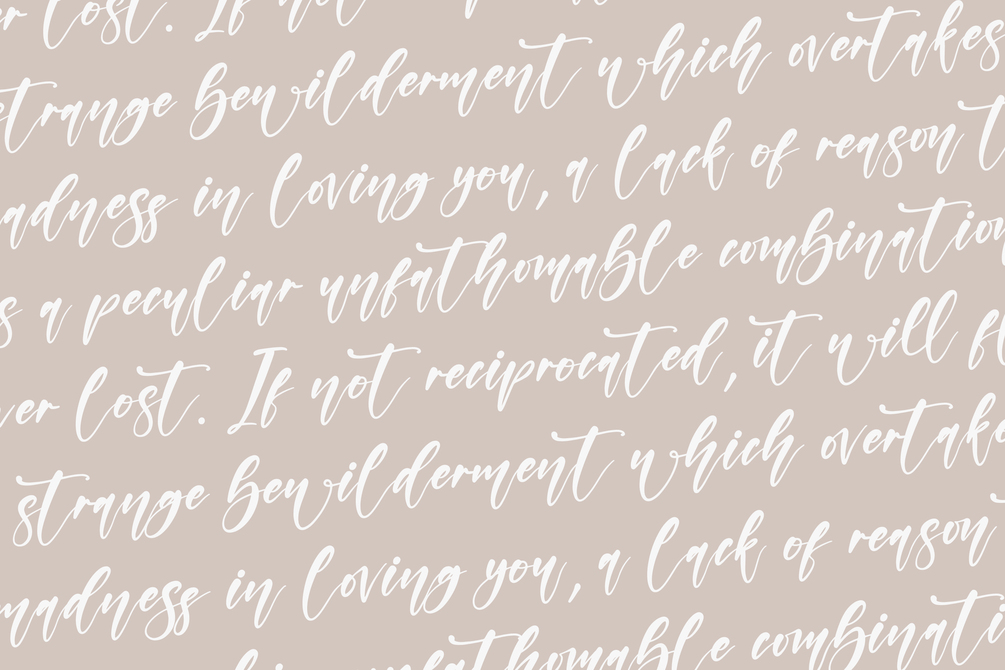 er lost. If not
strange bewilderment which overtakes
madness in loving you, a lack of reason t
s a peculiar unfathomable combination
ver lost. If not reciprocated, it will fl
strange bewilderment which overtake
madness in loving you, a lack of reason
unfathomable combinati